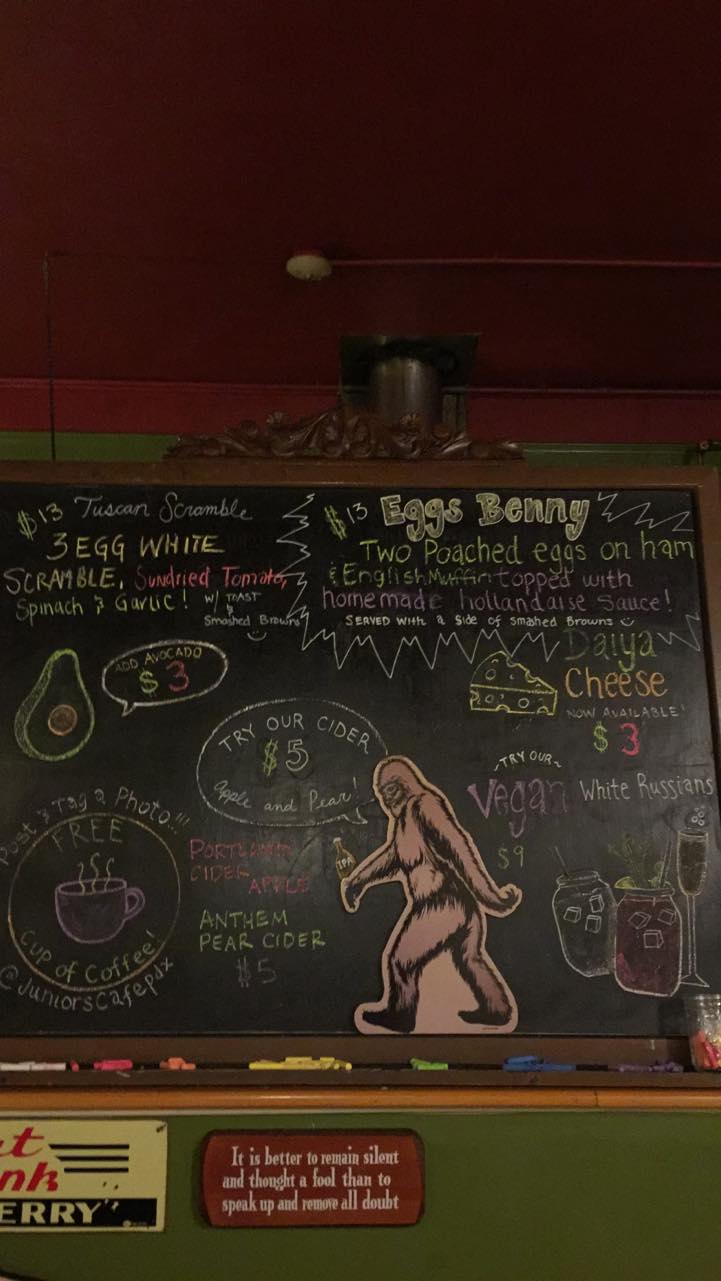 $13 Tuscan Scramble
3 EGG WHITE
SCRAMBLE, Sundried Tomato,
Spinach & Garlic! w/ TOAST
&
Smashed Browns
$13 Eggs Benny
Two Poached eggs on ham
& English Muffin topped with
homemade hollandaise Sauce!
SERVED WITH a Side OF Smashed Browns
ADD AVOCADO
$3
Daiya
Cheese
NOW AVAILABLE!
$3
TRY OUR CIDER
$5
Apple and Pear!
~TRY OUR~
Vegan White Russians
$9
Post & Tag a Photo!!!
FREE
Cup of Coffee!
@JuniorsCafepdx
PORTLAND
CIDER APPLE
ANTHEM
PEAR CIDER
$5
IPA
It is better to remain silent
and thought a fool than to
speak up and remove all doubt
ERRY